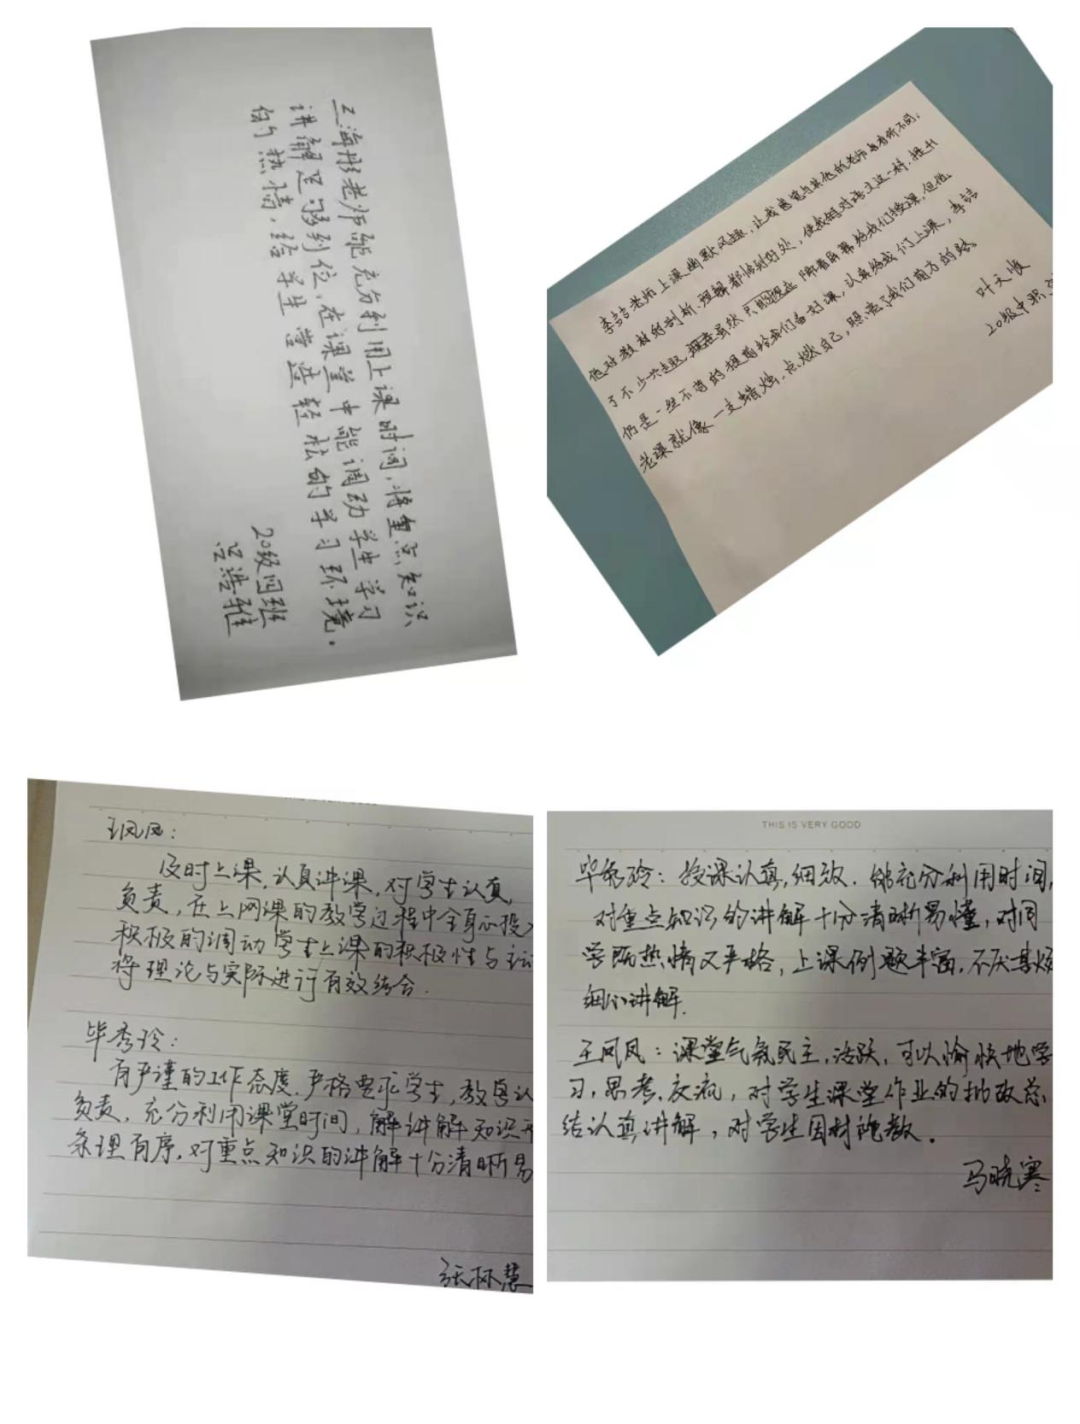 王海彤老师能充分利用上课时间,将重点知识
讲解足够到位,在课堂中能调动学生学习
的热情,给学生营造轻松的学习环境。
20级四班
吕浩雅
李喆老师上课幽默风趣,让我感觉与其他的老师与者所不同,
他对教材的剖析、理解都恰到好处,使我们对语文这一科,提升
了不少兴趣,虽然 隔着屏幕给我们授课,但他
仍是一丝不苟的提前给我们备好课,认真给我们上课,李喆
老课就像一支蜡烛,点燃自己,照亮了我们前方的路。
叶文
20级中职
王凤凤:
及时上课,认真讲课,对学生认真
负责,在上网课的教学过程中全身心投
积极的调动学生上课的积极性与主动
将理论与实际进行有效结合.
毕秀玲:
有严谨的工作态度.严格要求学生,教学认
负责,充分利用课堂时间,解讲解知识
条理有序.对重点知识的讲解十分清晰易
张怀慧
THIS IS VERY GOOD
毕秀玲:授课认真,细致.能充分利用时间,
对重点知识的讲解十分清晰易懂,对同
学既热情又严格,上课例题丰富,不厌其烦
细心讲解.
王凤凤:课堂气氛民主,活跃,可以愉快地学
习,思考,交流,对学生课堂作业的批改总
结认真讲解,对学生因材施教.
马晓寒